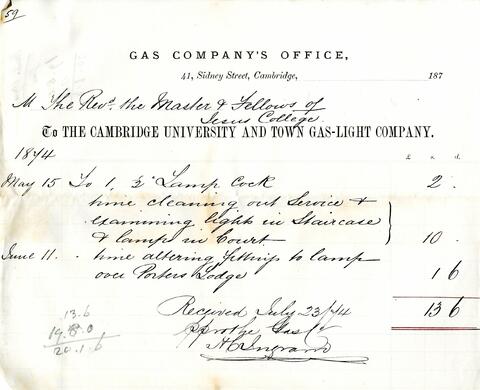 59
GAS COMPANY'S OFFICE,
41, Sidney Street, Cambridge, 187
M The Revd. the Master & Fellows of
Jesus College
To THE CAMBRIDGE UNIVERSITY AND TOWN GAS-LIGHT COMPANY.
1874 £ s. d.
May 15 To 1, ½" Lamp Cock 2 .
time cleaning out Service &
examining light in Staircase
& lamp in Court 10 .
June 11 . . time altering fitting to lamp
over Porters Lodge 1 6
Received July 23/74 13 6
pro the Gas Co
A C Ingram
13.6
19.8.0
20.1.6